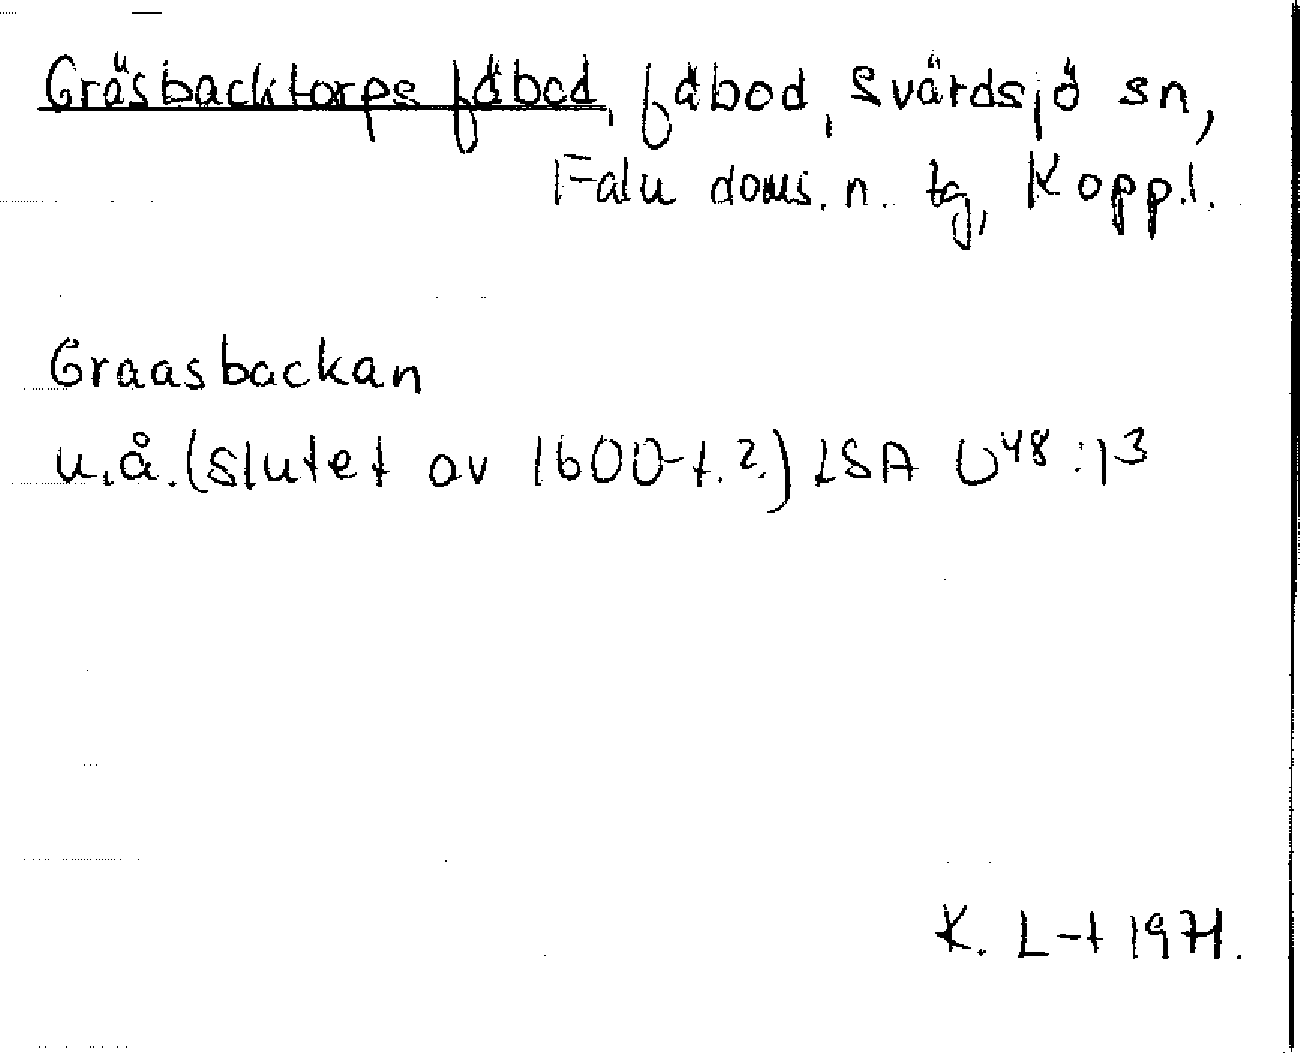 Gräsbacktorps fäbod, fäbod, Svärdsjö sn,
Falu doms. n. tg, Kopp.l.
Graasbackan
u.å. (slutet av 1600-t.?) LSA U48:13
K. L-t 1971.